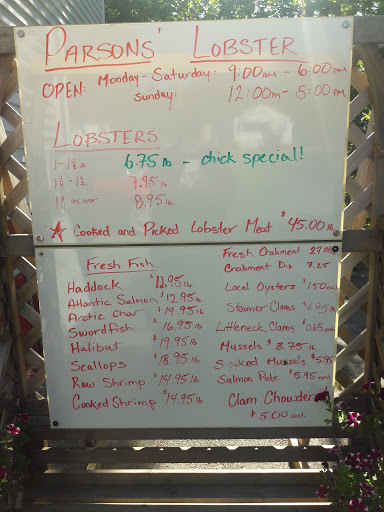 PARSONS' LOBSTER
OPEN: Monday - Saturday: 9:00 am - 6:00 pm
Sunday: 12:00 pm - 5:00 pm
LOBSTERS
6.75 lb - chick special!
7.95 lb
and over 8.95 lb.
Cooked and Picked Lobster Meat $45.00 lb.
Fresh Fish
Haddock $12.95 lb
Atlantic Salmon $12.95 lb
Arctic Char $14.95 lb
Swordfish $16.95 lb.
Halibut $19.95 lb
Scallops $18.95 lb.
Raw Shrimp $14.95 lb
Cooked Shrimp $14.95 lb.
Fresh Crabmeat 27.00
Crabmeat Dip 7.25
Local Oysters $1.50
Steamer Clams
Littleneck Clams $0.65
Mussels $3.75 lb.
Smoked Mussels $5.95
Salmon Pate $5.95
Clam Chowder
$5.00